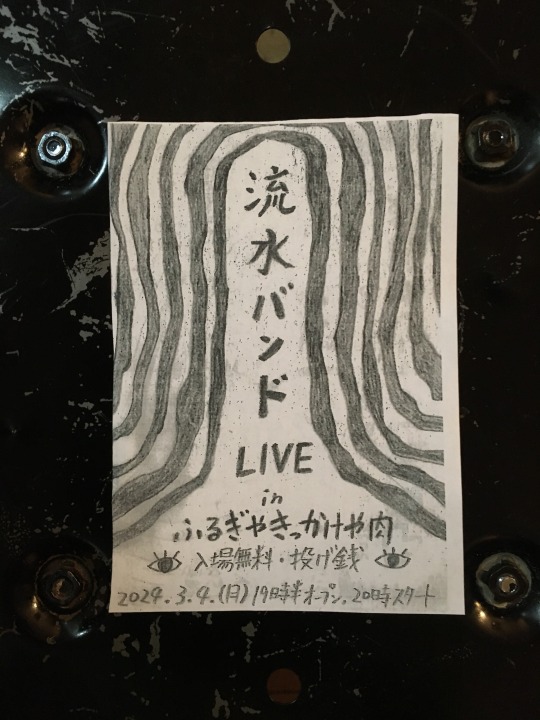 流水バンド
LIVE
in
ふるぎやきっかけや肉
入場無料・投げ銭
2024.3.4.(月)19時半オープン.20時スタート